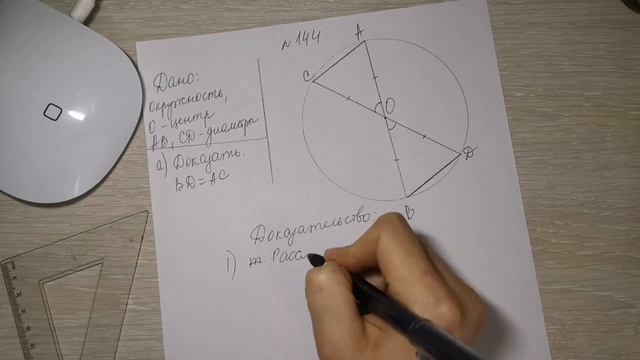 №144
Дано:
окружность,
O - центр
AB, CD - диаметр
а) Доказать:
BD = AC
A
C
O
D
B
Доказательство:
1) т. Расс